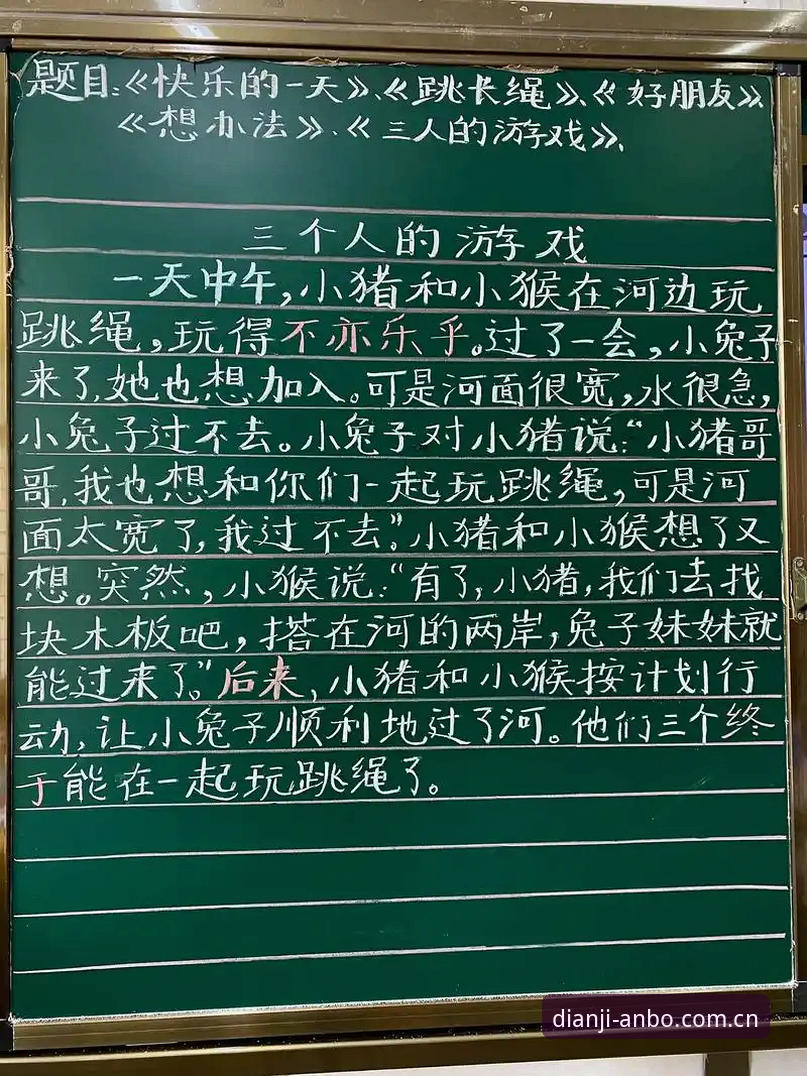 题目:《快乐的一天》、《跳长绳》、《好朋友》、
《想办法》、《三人的游戏》、
三个人的游戏
一天中午,小猪和小猴在河边玩
跳绳,玩得不亦乐乎。过了一会,小兔子
来了,她也想加入。可是河面很宽,水很急,
小兔子过不去。小兔子对小猪说:“小猪哥
哥,我也想和你们一起玩跳绳,可是河
面太宽了,我过不去。”小猪和小猴想了又
想。突然,小猴说:“有了,小猪,我们去找
块木板吧,搭在河的两岸,兔子妹妹就
能过来了。”后来,小猪和小猴按计划行
动,让小兔子顺利地过了河。他们三个终
于能在一起玩跳绳了。
dianji-anbo.com.cn